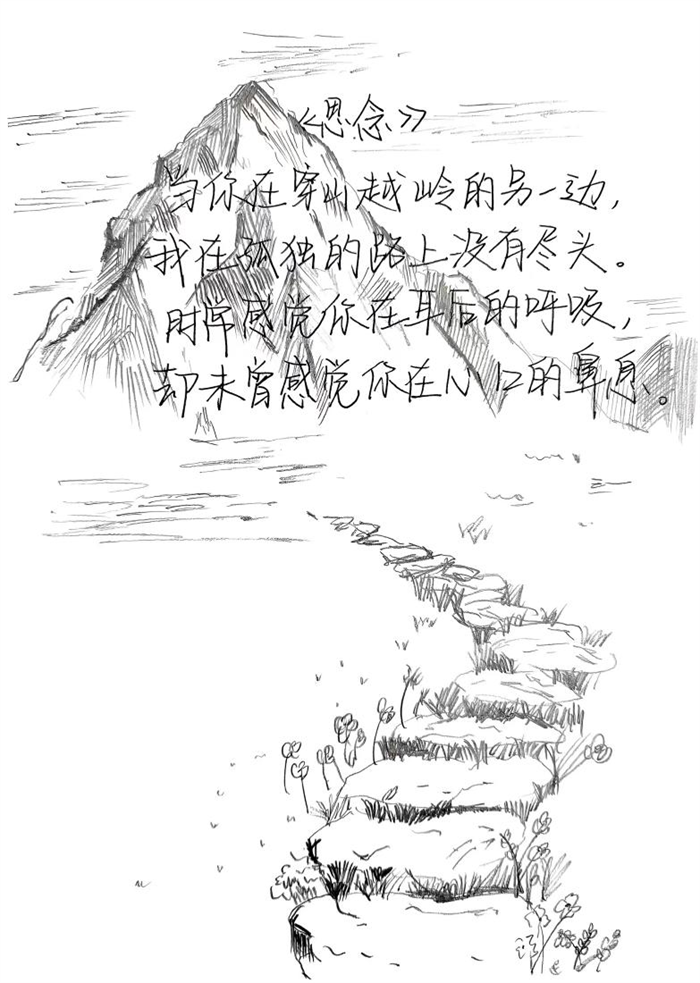 《思念》
当你在穿山越岭的另一边,
我在孤独的路上没有尽头。
时常感觉你在耳后的呼吸,
却未曾感觉你在心口的鼻息。